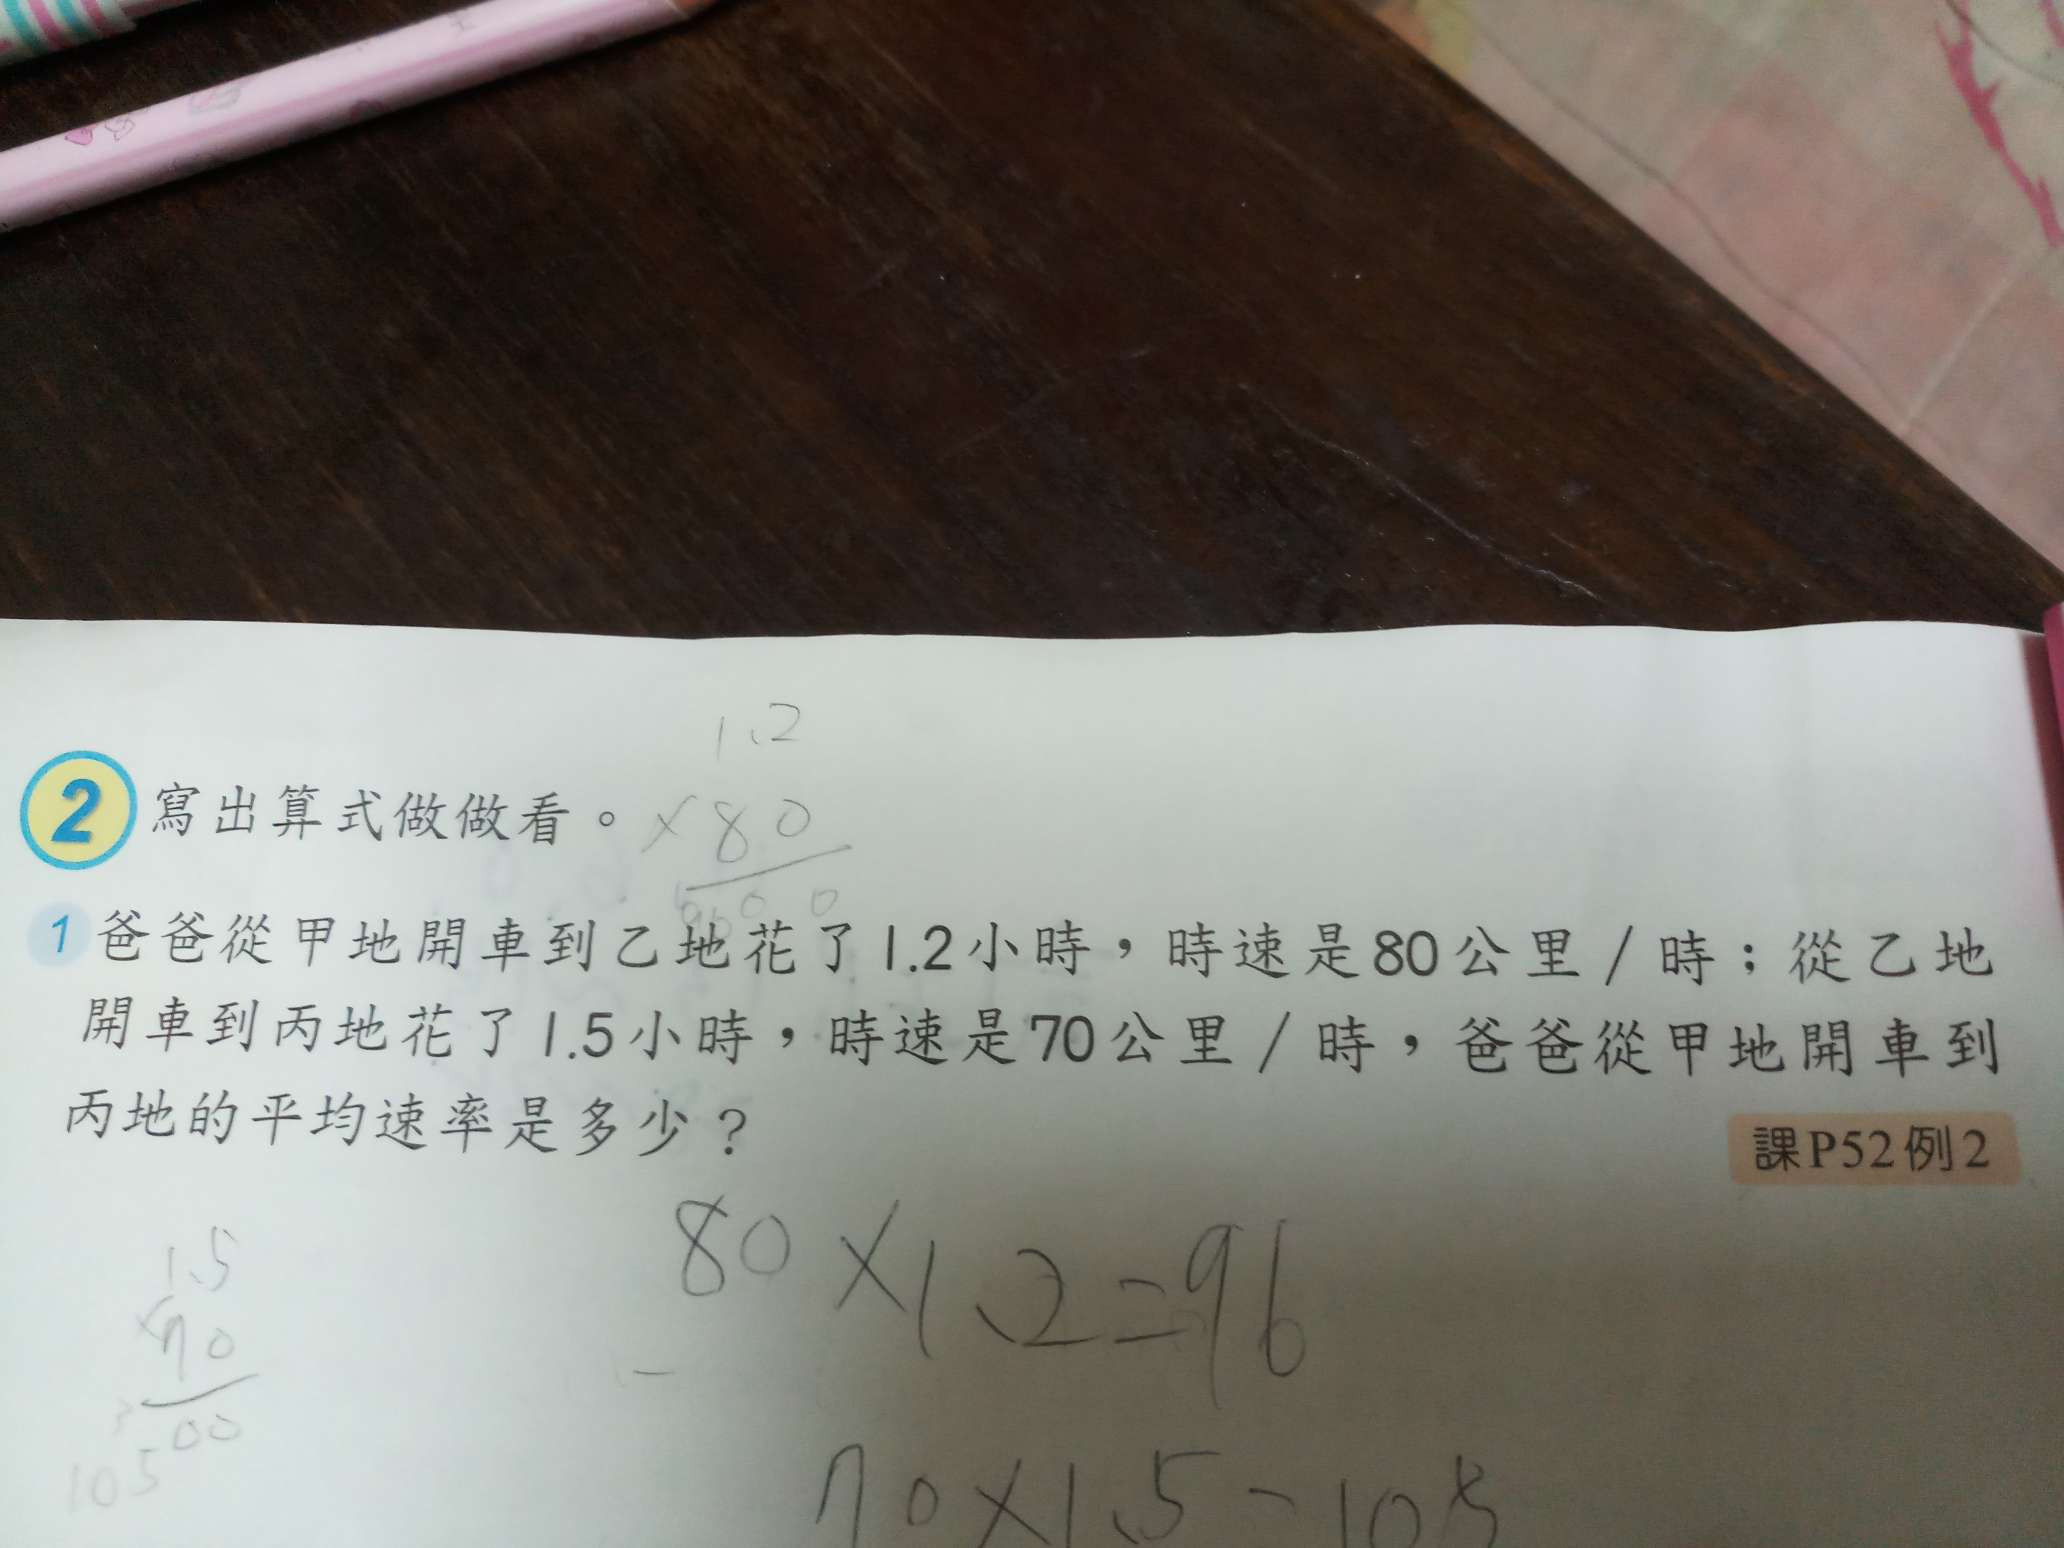 1.2
2 寫出算式做做看。
×80
1 爸爸從甲地開車到乙地花了1.2小時，時速是80公里／時；從乙地
開車到丙地花了1.5小時，時速是70公里／時，爸爸從甲地開車到
丙地的平均速率是多少？
課P52例2
80×1.2=96
1.5
×70
00
105
70×1.5=105